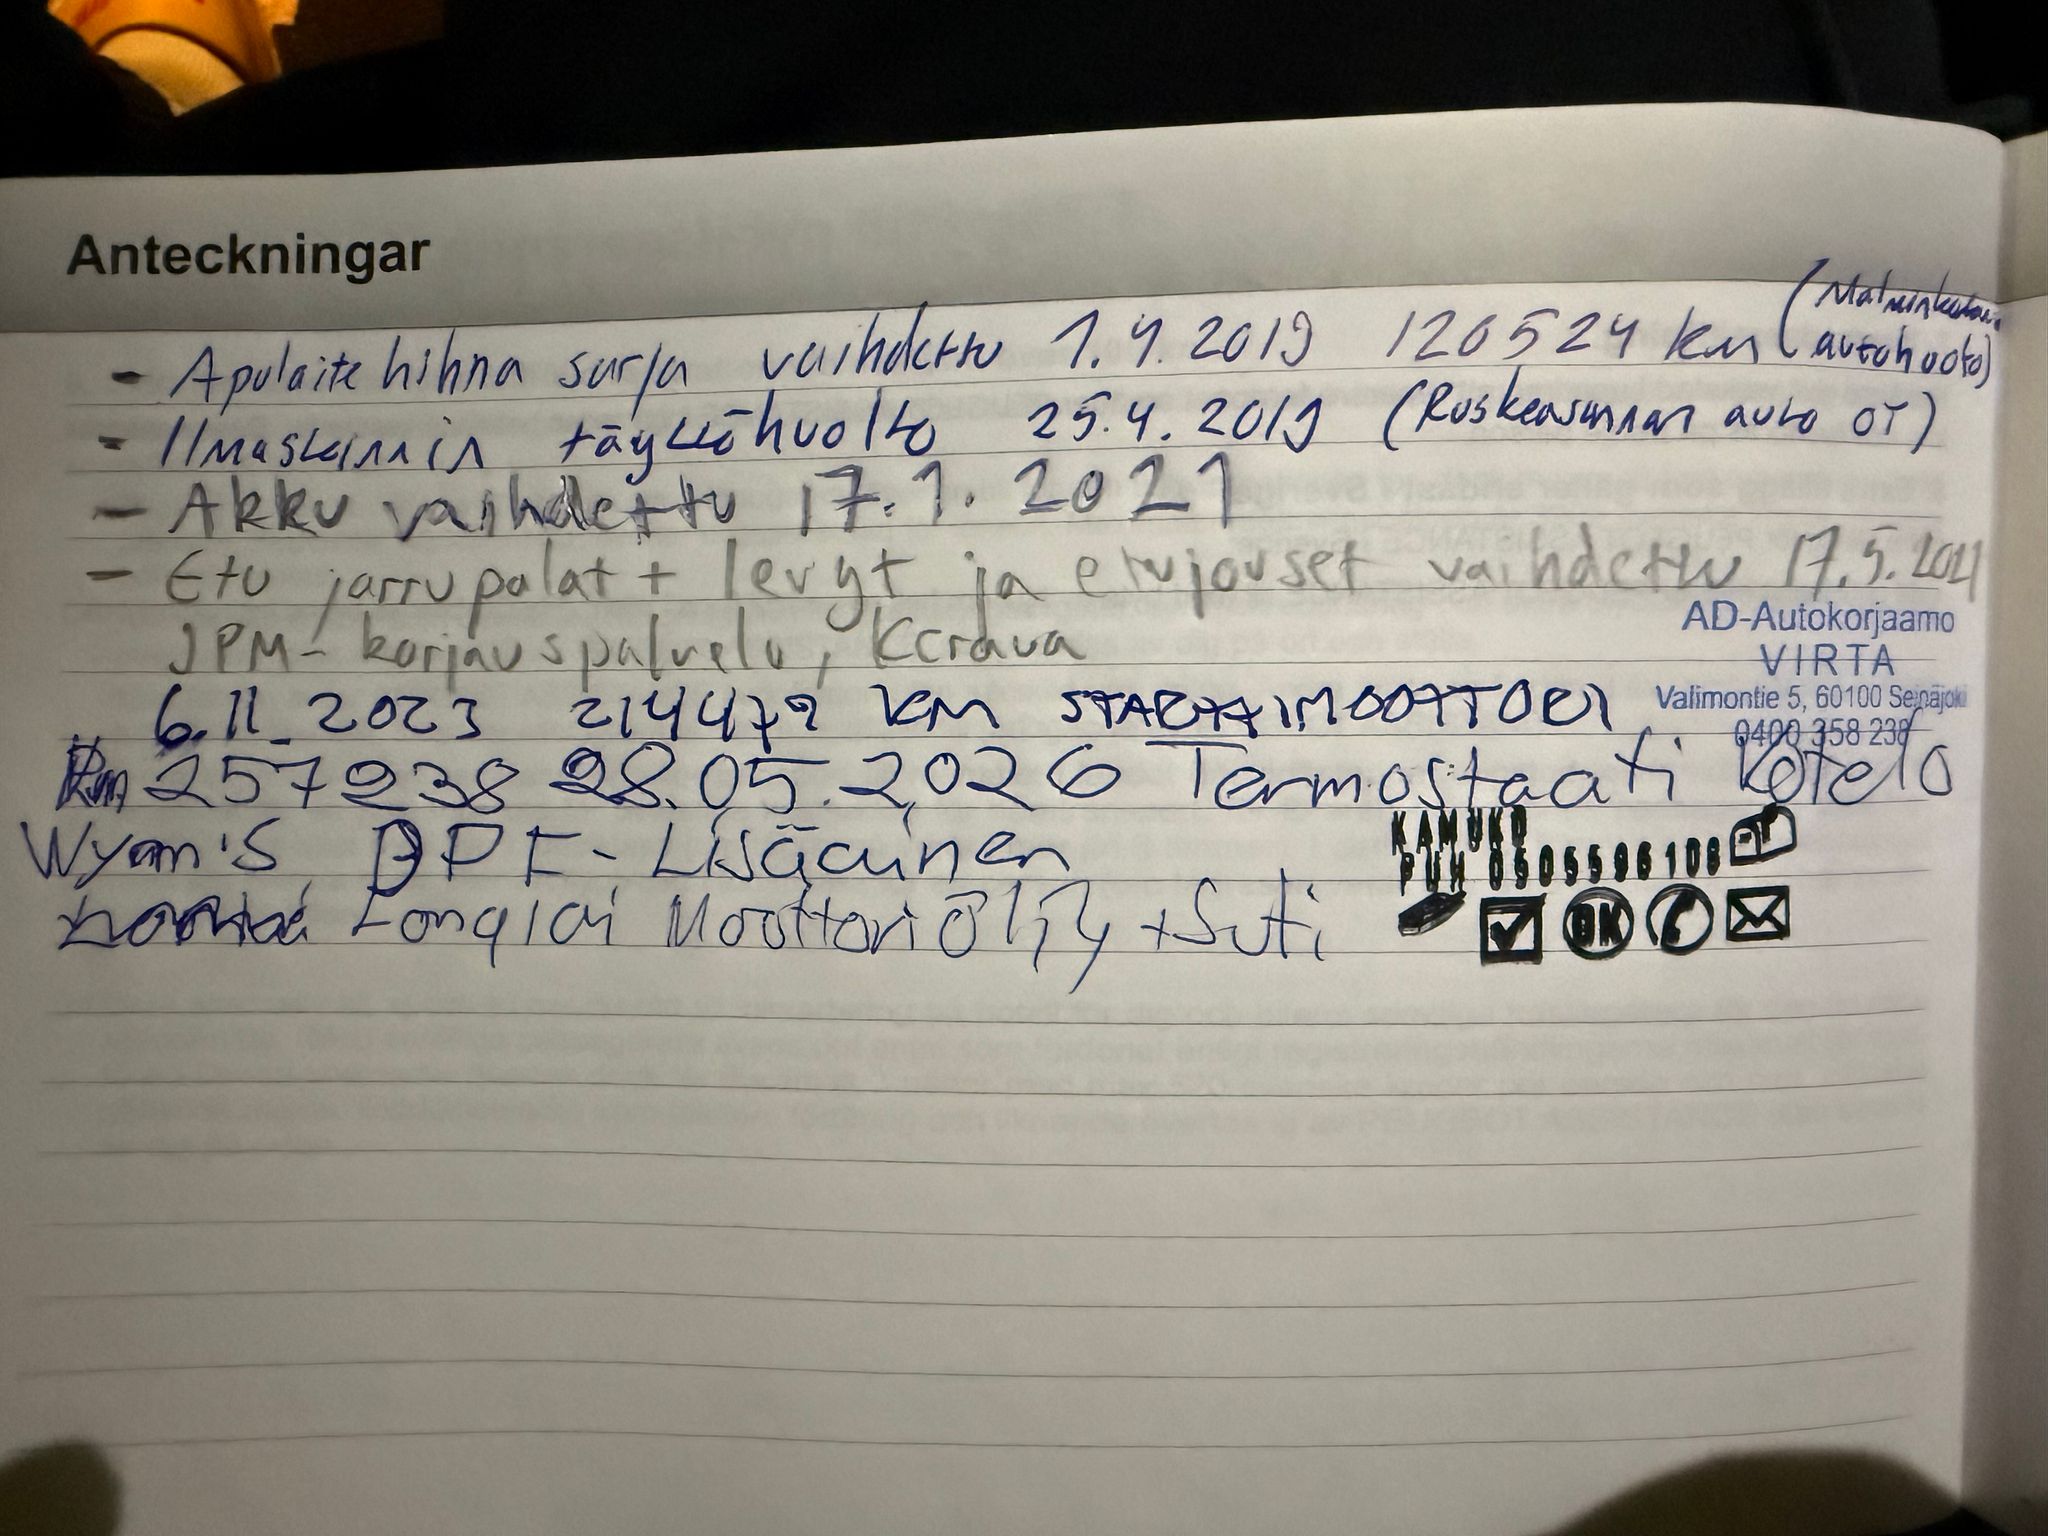 Anteckningar
- Apulaite hihna sarja vaihdettu 1.4.2019 120524 km (Malminkartano autohuolto)
- Ilmastoinnin täyttöhuolto 25.4.2019 (Ruskeasannan auto OY)
- Akku vaihdettu 17.1.2021
- Etu jarrupalat + levyt ja etujouset vaihdettu 17.5.2021
JPM-korjauspalvelu, Kerava
AD-Autokorjaamo
VIRTA
Valimontie 5, 60100 Seinäjoki
0400 358 238
6.11.2023 214479 KM STARTTIMOOTTORI
Km 257238 28.05.2026 Termostaati Kotelo
Wynn's DPF-Lisäaineen
Moottoriöljy + Suti
KAMUKO
PUH 0505596108
OK